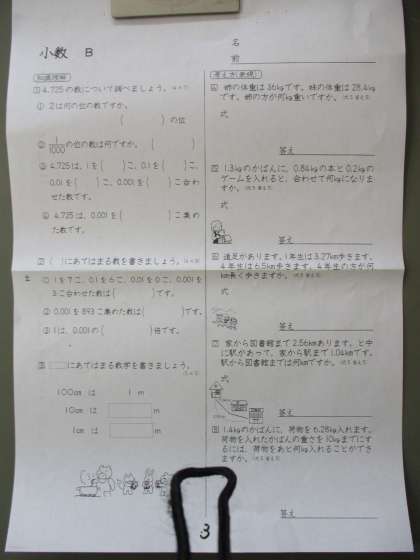 小数 B
名
前
知識理解
① 4.725の数について調べましょう。
① 2は何の位の数ですか。
( )の位
② 1/1000の位の数は何ですか。( )
③ 4.725は、1を( )こ、0.1を( )こ、
0.01を( )こ、0.001を( )こ合わ
せた数です。
④ 4.725は、0.001を( )こ集め
た数です。
② ( )にあてはまる数を書きましょう。
① 1を7こ、0.1を6こ、0.01を0こ、0.001を
3こ合わせた数は( )です。
② 0.001を893こ集めた数は( )です。
③ 1は、0.001の( )倍です。
③ にあてはまる数字を書きましょう。
100cm は 1 m
10cm は m
1cm は m
考え方(表現)
④ 姉の体重は36kgです。妹の体重は28.4kg
です。姉の方が何kg重いですか。
式
答え
⑤ 1.3kgのかばんに、0.84kgの本と0.2kgの
ゲームを入れると、合わせて何kgになりま
すか。
式
答え
⑥ 遠足があります。1年生は3.27km歩きます。
4年生は6.5km歩きます。4年生の方が何
km長く歩きますか。
式
答え
⑦ 家から図書館まで2.56kmあります。と中
に駅があって、家から駅まで1.04kmです。
駅から図書館までは何kmですか。
式
答え
⑧ 1.4kgのかばんに、荷物を6.28kg入れます。
荷物を入れたかばんの重さを10kgまでにす
るには、荷物をあと何kg入れることができ
ますか。
答え
3